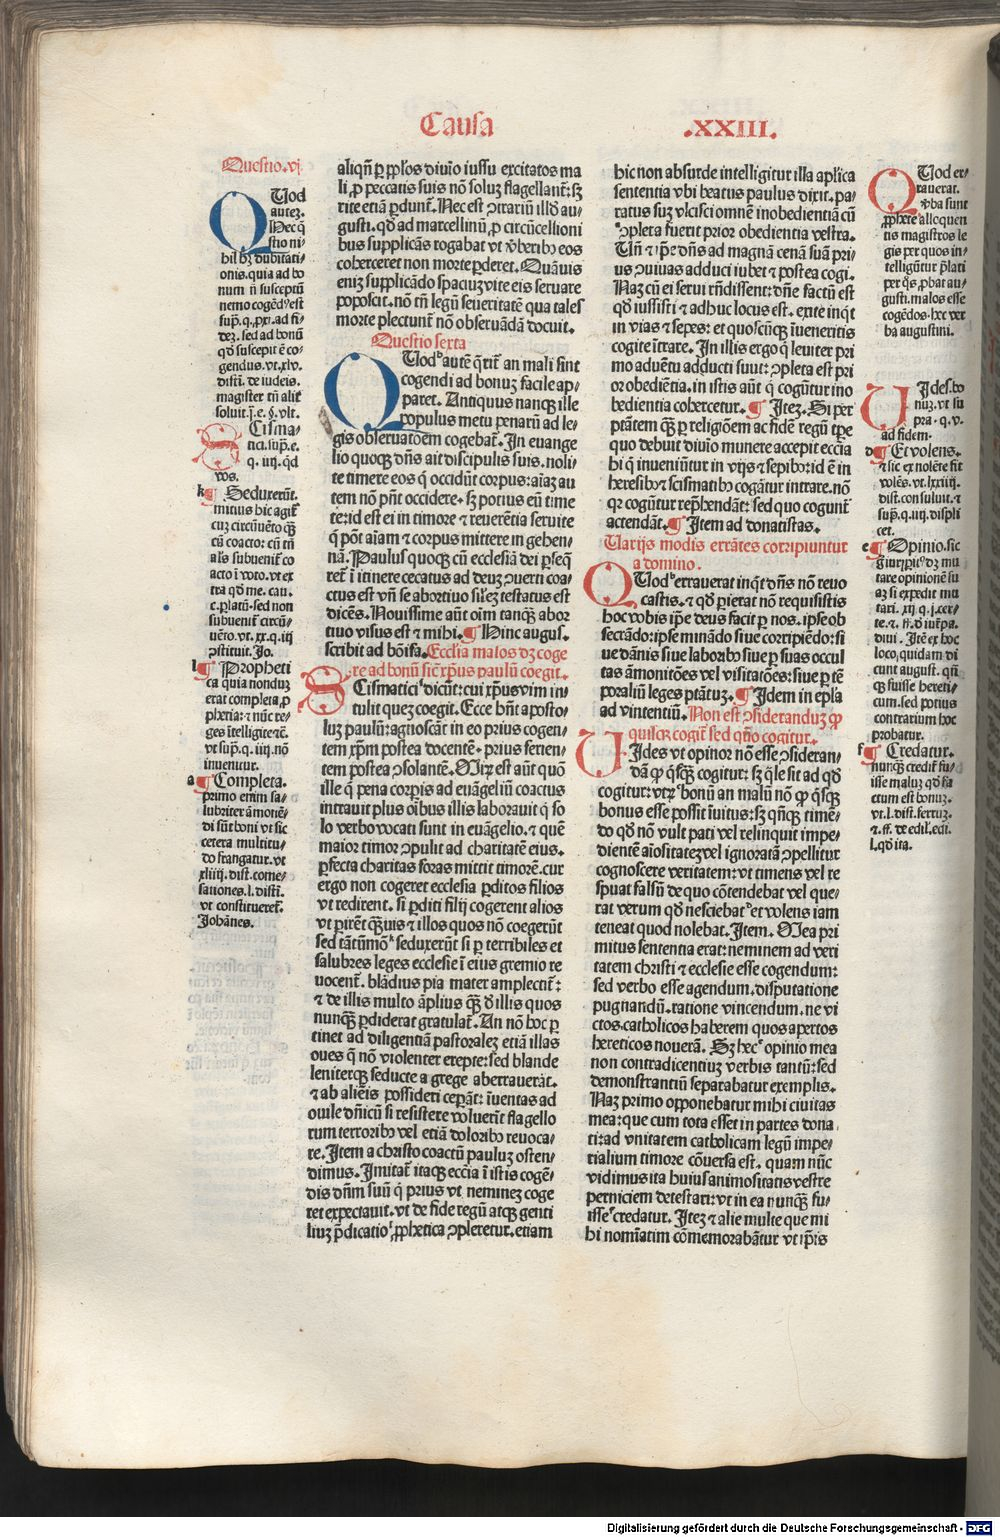 Causa
.XXIII.
Questio.vj.
QUod
autez.
Nec q̄
stio ni⸗
hil hꝫ dubitati⸗
onis. quia ad bo
num n̄ susceptū
nemo cogēdꝰ est
gendus. vt. xlv.
disti. de iudeis.
magister tn̄ alit̄
Scisma⸗
vos.
k¶ Seduxerūt.
l¶ Propheti
ca quia nonduz
erat completa, ꝓ
inueniuntur.
a¶ Completa.
primo enim sa⸗
lubriter āmonē⸗
di sūt boni vt sic
cetera multitu⸗
do frangatur. vt
xliiij. dist. come⸗
sationes. l. disti.
vt constitueret̄.
Johānes.
aliqn̄ ꝑ ꝓp̄los diuīo iussu excitatos ma
li ꝓ peccatis suis nō soluꝫ flagellant̄: sꝫ
rite etiā ꝑdunt̄. Nec est ꝯtrariū illd̄ au⸗
gusti. qd̄ ad marcellinū, ꝓ circūcellioni
bus supplicās rogabat vt v̄beribꝰ eos
coherceret non morte ꝑderet. Quāuis
eniꝫ supplicādo spaciuꝫ vite eis seruare
poposcit. nō tn̄ legū seueritatē qua tales
morte plectunt̄ nō obseruādā docuit.
Questio sexta
QUodᵇ autē q̄rit̄ an mali sint
cogendi ad bonuꝫ facile ap⸗
paret. Antiquus nanqꝫ ille
populus metu penarū ad le⸗
gis obseruatōem cogebat̄. In euange
lio quoqꝫ dn̄s ait discipulis suis. noli⸗
te timere eos q̄ occidūt corpus: aīaꝫ au
tem nō pn̄t occidere. sꝫ potius eū time
te: id est ei in timore ⁊ reuerētia seruite
q̄ pōt aīam ⁊ corpus mittere in gehen⸗
nā. Paulus quoqꝫ cū ecclesiā dei ꝑseq̄
ret̄ ī itinere cecatus ad deuꝫ ꝯuerti coa⸗
ctus est vn̄ se abortiuo sil̄eꝫ testatus est
dicēs. Nouissime aūt oīm tanqꝫ abor
tiuo visus est ⁊ mihi. ¶ Hinc augus.
scribit ad bōifa. Ecclīa malos dꝫ coge
re ad bonū sic̄ xp̄us paulū coegit.
SCismatici dicūt: cui xp̄us vim in⸗
tulit queꝫ coegit. Ecce hn̄t aposto⸗
luꝫ paulū: agnoscāt in eo prius cogen⸗
tem xp̄m postea docentē. prius ferien⸗
tem postea ꝯsolantē. Mirꝫ est aūt quō
ille q̄ pena corꝑis ad euāgeliū coactus
intrauit plus oībus illis laborauit q̄ so
lo verbo vocati sunt in euāgelio. ⁊ quē
maior timor ꝯpulit ad charitatē eius.
ꝑfecta charitas foras mittit timorē. cur
ergo non cogeret ecclesia ꝑditos filios
vt redirent. si ꝑditi filij cogerent alios
vt ꝑirēt qꝫuis ⁊ illos quos nō coegerūt
sed tātūmōᵏ seduxerūt si ꝑ terribiles et
salubres leges ecclesie ī eius gremio re
uocent̄. blādius pia mater amplectit̄:
⁊ de illis multo āplius qꝫ d̄ illis quos
nunqꝫ ꝑdiderat gratulat̄. An nō hoc ꝑ
tinet ad diligentiā pastoraleꝫ etiā illas
oues q̄ nō violenter erepte: sed blande
leniterqꝫ seducte a grege aberrauerāt.
⁊ ab alīeis possideri ceꝑāt: īuentas ad
ouile dn̄icū si resistere voluerūt flagello
rum terroribꝰ vel etiā doloribꝰ reuoca⸗
re. Item a christo coactū pauluꝫ osten⸗
dimus. Imitat̄ itaqꝫ ecc̄ia ī istis cogē⸗
dis dn̄m suū q̄ prius vt nemineꝫ coge
ret expectauit. vt de fide regū atqꝫ genti
liuꝫ p̄dicatioˡ ꝓphetica ꝯpleretur. etiam
hic non absurde intelligitur illa apl̄ica
sententia vbi beatus paulus dixit. pa⸗
ratus suꝫ vlcisci omnē inobedientiā cū
ᵃꝯpleta fuerit prior obedientia vestra.
Un̄ ⁊ ip̄e dn̄s ad magnā cenā suā pri⸗
us ꝯuiuas adduci iubet ⁊ postea cogi.
Naꝫ cū ei serui rn̄dissent: dn̄e factū est
qd̄ iussisti ⁊ adhuc locus est. exite inqt
in vias ⁊ sepes: et quoscūqꝫ īueneritis
cogite ītrare. In illis ergo q̄ leuiter pri
mo aduētu adducti suut: ꝯpleta est pri
or obediētia. in istis aūt q̄ cogūtur ino
bedientia cohercetur. ¶ Iteꝫ. Si per
ptātem qꝫ ꝑ religiōem ac fidē regū tp̄e
quo debuit diuīo munere accepit ecc̄ia
hi q̄ inueniūtur in vijs ⁊ sepibꝰ: id ē in
heresibꝰ ⁊ scismatibꝰ cogātur intrare. nō
qꝛ cogūtur rep̄hendāt: sed quo cogunt̄
actendāt. ¶ Item ad donatistas.
Uarijs modis errātes corripiuntur
a domino.
QUodᵇ errauerat inqt dn̄s nō reuo
castis. ⁊ qd̄ ꝑierat nō requisistis
hoc vobis ip̄e deus facit ꝑ nos. ip̄se ob
secrādo: ip̄se minādo siue corripiēdo: si
ue dānis siue laboribꝰ siue ꝑ suas occul
tas āmonitōes vel visitatiōes: siue ꝑ tē
poraliū leges ptātuꝫ. ¶ Idem in epl̄a
ad vintentiū. Non est ꝯsideranduꝫ ꝙ
quisqꝫ cogit̄ sed qn̄o cogitur.
UIdes vt opinor nō esse ꝯsideran⸗
dā ꝙ qꝫqꝫ cogitur: sꝫ q̄le sit ad qd̄
cogitur: vtrꝫ bonū an malū nō ꝙ qꝫqꝫ
bonus esse possit īuitus: sꝫ qn̄qꝫ timē⸗
do qd̄ nō vult pati vel relinquit impe⸗
dientē aīositateꝫ vel ignoratā ꝯpellitur
cognoscere veritatem: vt timens vel re
spuat falsū de quo cōtendebat vel que⸗
rat verum qd̄ nesciebatᵈ et volens iam
teneat quod nolebat. Item. Mea pri
mitus sententia erat: neminem ad veri
tatem christi ⁊ ecclesie esse cogendum:
sed verbo esse agendum. disputatione
pugnandū. ratione vincendum. ne vi
ctos catholicos haberem quos apertos
hereticos nouerā. Sꝫ hecᵉ opinio mea
non contradicentiuꝫ verbis tantū: sed
demonstrantiū separabatur exemplis.
Naꝫ primo opponebatur mihi ciuitas
mea: que cum tota esset in partes dona
ti: ad vnitatem catholicam legū impe⸗
rialium timore cōuersa est. quam nūc
vidimus ita huius animositatis vestre
perniciem detestari: vt in ea nunqꝫ fu⸗
isseᶠ credatur. Iteꝫ ⁊ alie multe que mi
hi nomīatim cōmemorabātur vt ip̄is
QUod er⸗
rauerat.
v̄ba sunt
ꝓphete alloquen
tis magistros le
gis per quos in⸗
telligūtur p̄lati
per q̄s, ꝓbat au⸗
gusti. malos esse
cogēdos. hec ver
ba augustini.
UIdes. bo
nuꝫ. vt su
pra. q. v.
ad fidem.
d¶ Et volens.
⁊ sic ex nolēte fit
volēs. vt. lxxiiij.
dist. consuluit. ⁊
sup̄. q. iiij. displi
cet.
e¶ Opinio. sic
tare opinionē su
aꝫ si expedit mu
loco, quidam di
cunt august. qn̄
qꝫ fuisse hereti⸗
cum. sed potius
contrarium hoc
probatur.
f¶ Credatur.
nunqꝫ credit̄ fu⸗
isse maluꝫ qd̄ fa
ctum est bonuꝫ.
vt. l. dist. ferruꝫ.
⁊. ff. de edil. edi.
l. qd̄ ita.
Digitalisierung gefördert durch die Deutsche Forschungsgemeinschaft - DFG